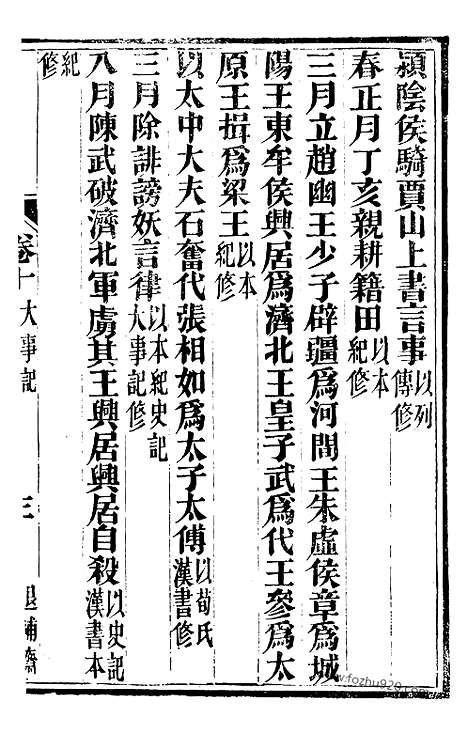 潁陰侯騎賈山上書言事以列傳修
春正月丁亥親耕籍田以本紀修
三月立趙幽王少子辟疆爲河間王朱虛侯章爲城
陽王東牟侯興居爲濟北王皇子武爲代王參爲太
原王揖爲梁王以本紀修
以太中大夫石奮代張相如爲太子太傅以荀氏漢書修
三月除誹謗妖言律以本紀史記大事記修
八月陳武破濟北軍虜其王興居興居自殺以史記漢書本
紀修
卷十 大事記 三 退補齋
www.fozhu920.com